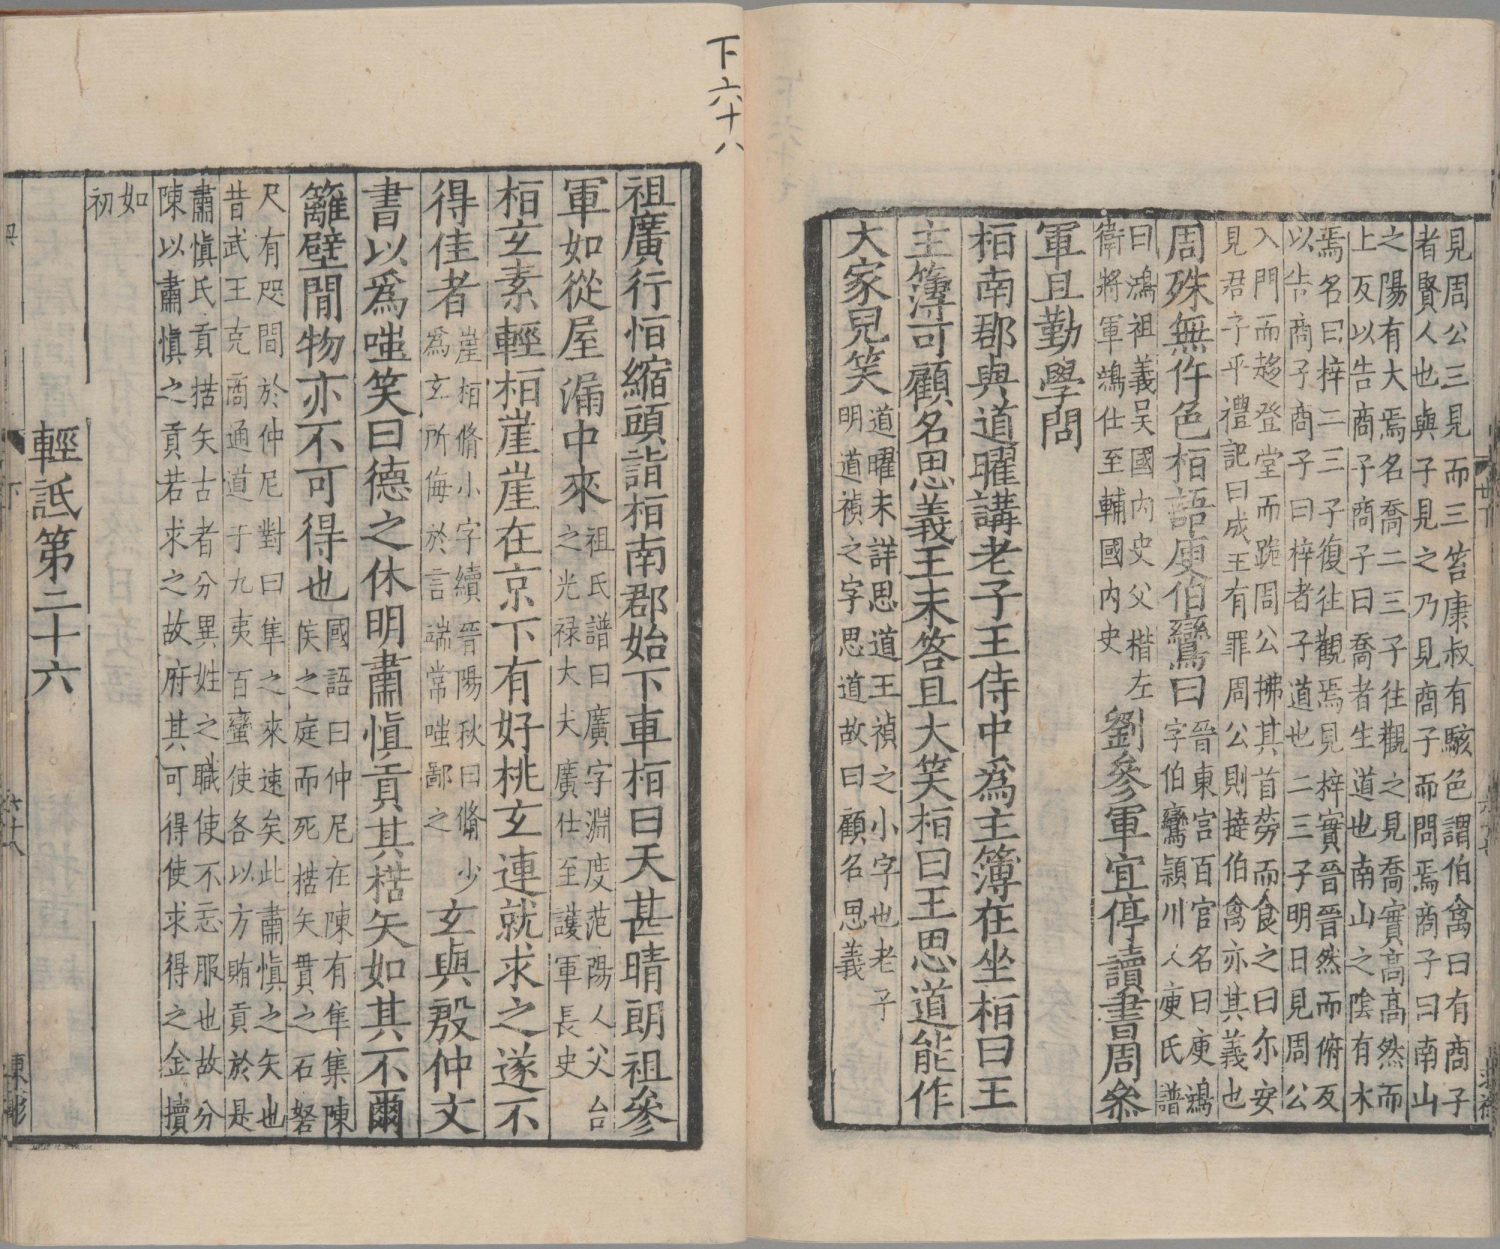 見周公三見而三笞康叔有駭色謂伯禽曰有商子
者賢人也與子見之乃見商子而問焉商子曰南山
之陽有大焉名喬二三子往觀之見喬實高高然而
上反以告商子商子曰喬者生道也南山之陰有木
焉名曰梓二三子復往觀焉見梓實晉晉然而俯反
以告商子商子曰梓者子道也二三子明日見周公
入門而趍登堂而跪周公拂其首勞而食之曰尔安
見君子乎禮記曰成王有罪周公則撻伯禽亦其義也
周殊無忤色桓語庾伯鸞曰
晉東宮百官名曰庾鴻
字伯鸞潁川人庾氏譜
曰鴻祖義吳國內史父楷左
衛將軍鴻仕至輔國內史
劉參軍宜停讀書周參
軍且勤學問
桓南郡與道曜講老子王侍中為主簿在坐桓曰王
主簿可顧名思義王未答且大笑桓曰王思道能作
大家兒笑
道曜未詳思道王禎之小字也老子
明道禎之字思道故曰顧名思義
下六十八
祖廣行恒縮頭詣桓南郡始下車桓曰天甚晴朗祖參
軍如從屋漏中來
祖氏譜曰廣字淵度范陽人父台
之光祿大夫廣仕至護軍長史
桓玄素輕桓崖崖在京下有好桃玄連就求之遂不
得佳者
崖桓脩小字續晉陽秋曰脩少
為玄所侮於言端常嗤鄙之
玄與殷仲文
書以為嗤笑曰德之休明肅慎貢其楛矢如其不爾
籬壁閒物亦不可得也
國語曰仲尼在陳有隼集陳
侯之庭而死楛矢貫之石砮
尺有咫問於仲尼對曰隼之來遠矣此肅慎之矢也
昔武王克商通道于九夷百蠻使各以方賄貢於是
肅慎氏貢楛矢古者分異姓之職使不忘服也故分
陳以肅慎之貢若求之故府其可得使求得之金櫝
如
初
輕詆第二十六